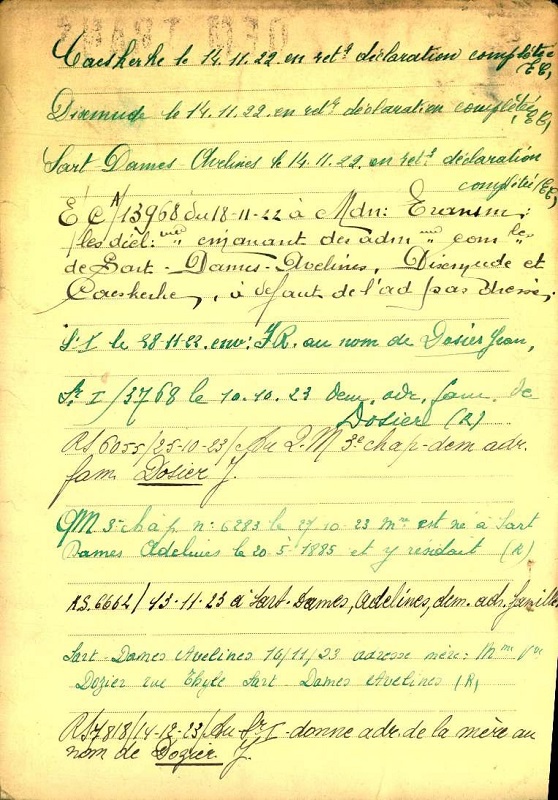 Caeskerke le 14.11.22 en ret^d déclaration complétée
(EE)
Dixmude le 14.11.22 en ret^d déclaration complétée
(EE)
Sart Dames Avelines le 14.11.22 en ret^d déclaration
complétée (EE)
E C A/13968 du 18-11-22 à Mdn: Transm:
les décl: émanant des adm com^les
de Sart-Dames-Avelines, Dixmude et
Caeskerke, à défaut de l'ad pas dressé;
S^r I le 28-11-22 env: F.R. au nom de Dosier Jean,
S^r I/3768 le 10.10.23 dem. adr. fam. de
Dosier (R)
RS 6055/25-10-23/Au Q.M 3^e chap-dem adr.
fam Dosier J.
QM 3^e chap n: 6283 le 27 10 23 m^re est né à Sart
Dames Adelines le 20-5-1895 et y résidait (R)
RS.6662/13-11-23 à Sart-Dames, Adelines, dem. adr. famille
Sart-Dames Avelines 16/11/23 adresse mère: M^me V^ve
Dozier rue Thyle Sart-Dames Avelines (R)
RS 7818/14-12-23/Au S^r I-donne adr. de la mère au
nom de Dozier J.